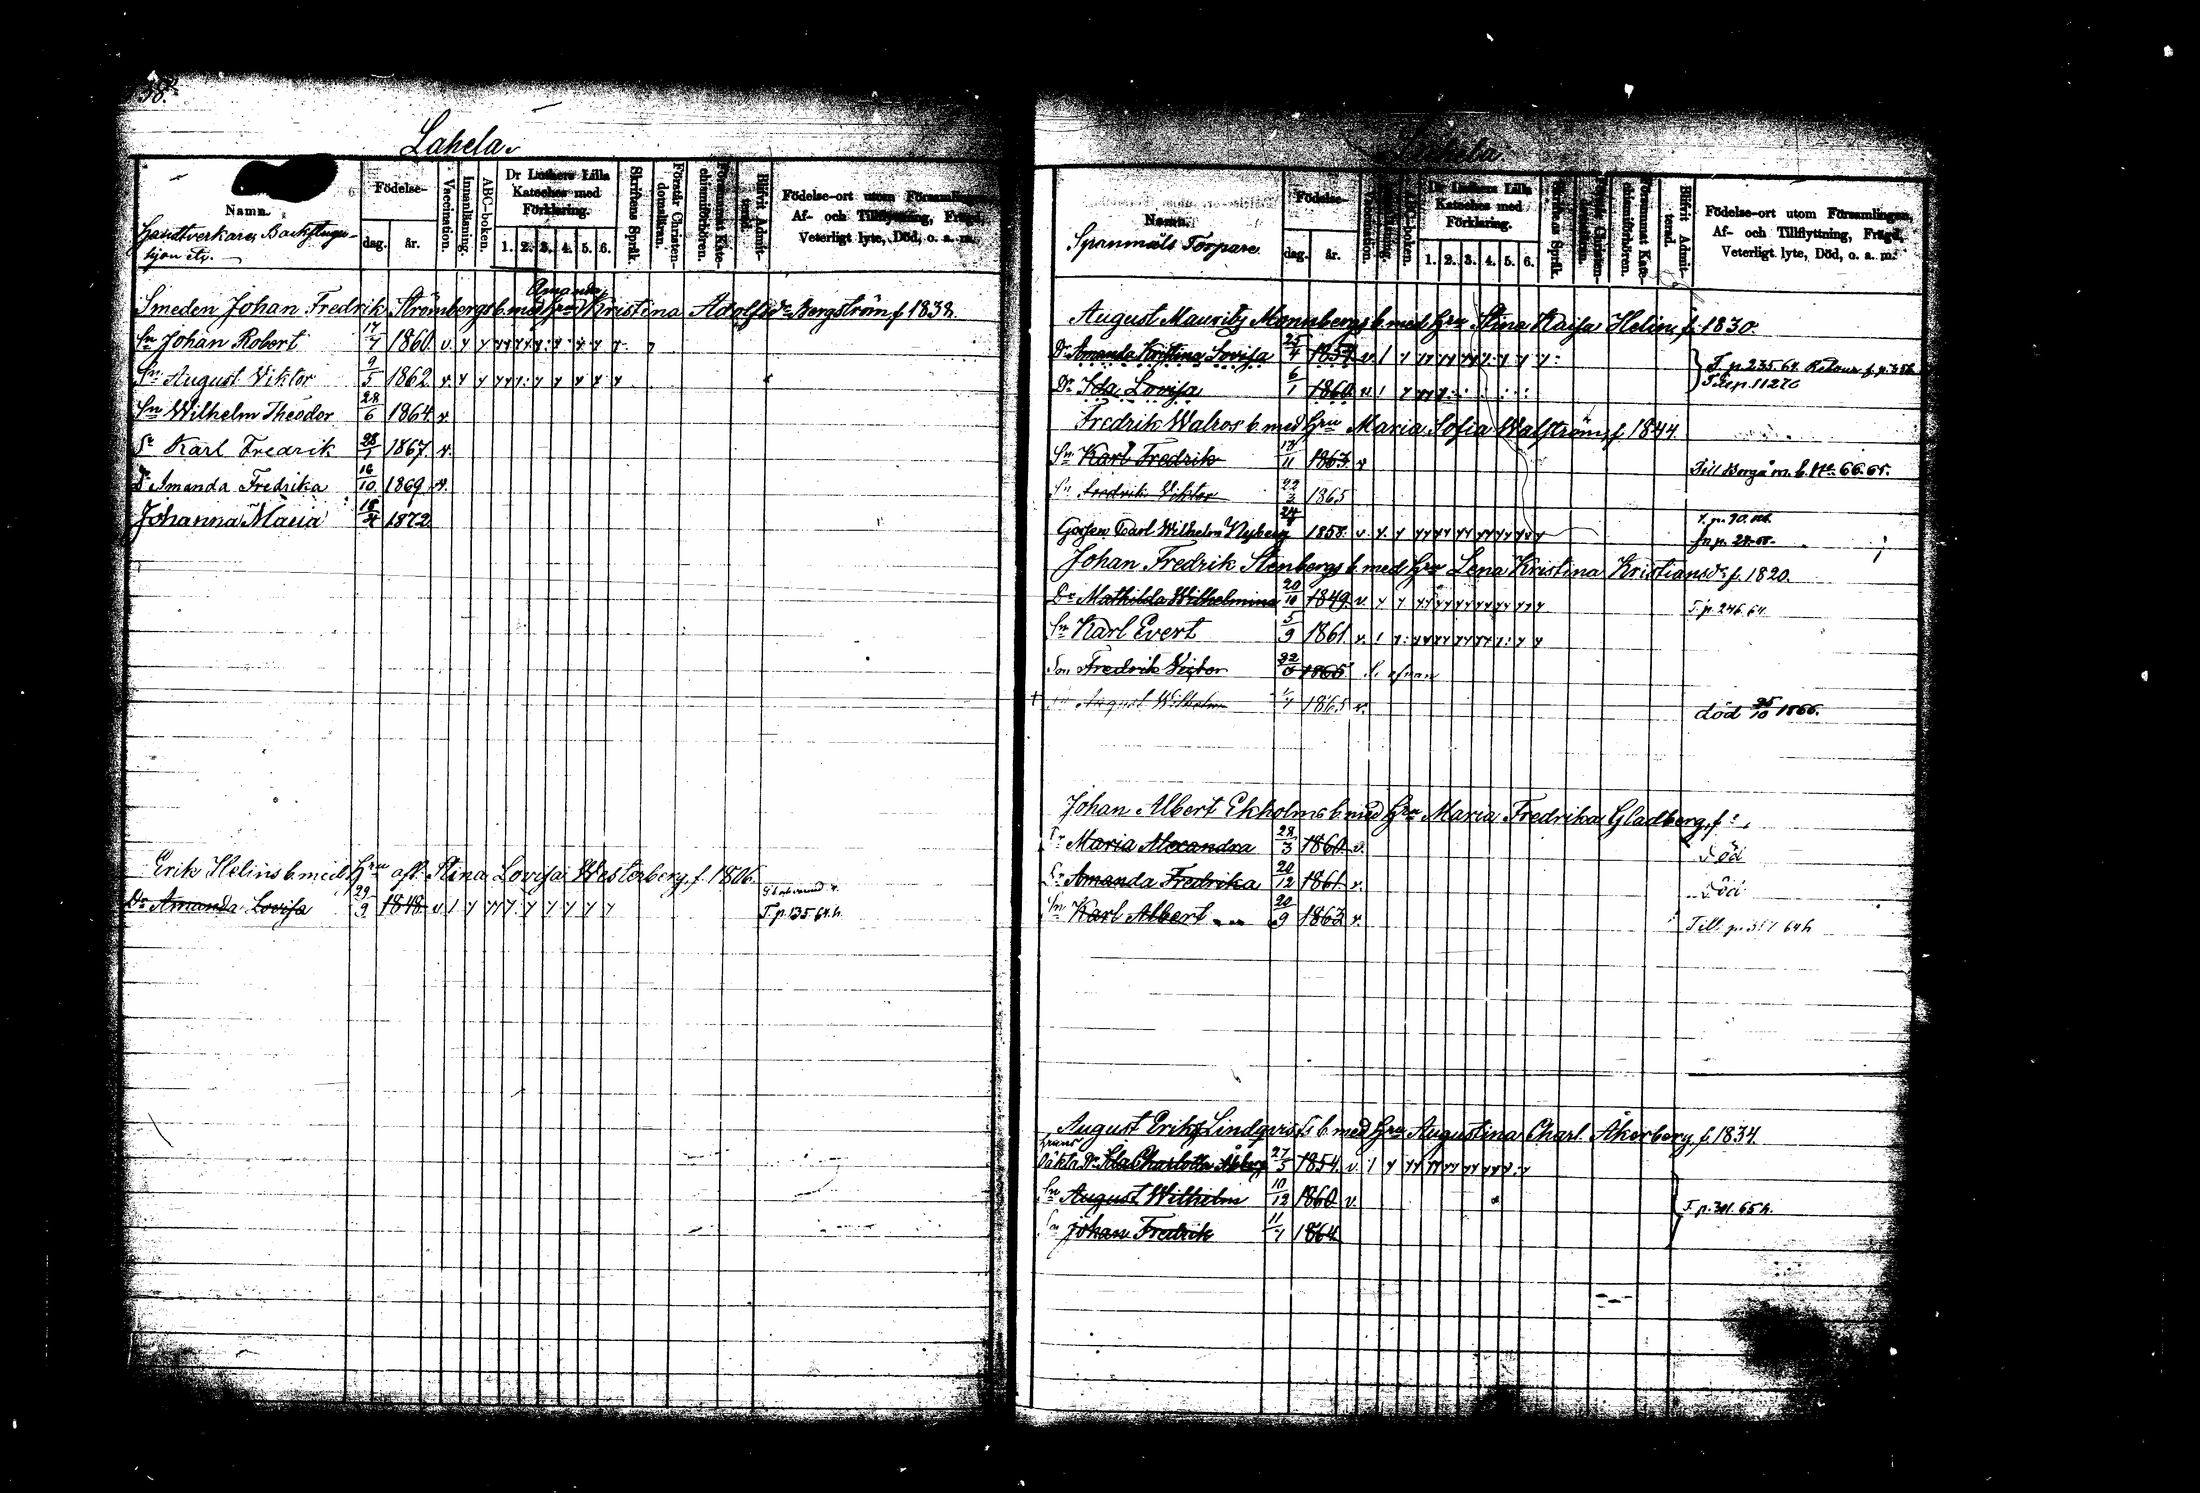 Lahela.
Namn.
Handtverkare, Backstugu-
hjon etc.
Födelse-
dag.
år.
Vaccination.
Innanläsning.
ABC-boken.
Dr Luthers Lilla
Kateches med
Förklaring.
1. 2. 3. 4. 5. 6.
Skriftens Språk.
Förstår Christen-
domsläran.
Försummat Kate-
chismiförhören.
Blifvit Admit-
terad.
Födelse-ort utom Församlingen,
Af- och Tillflyttning, Frägd,
Veterligt lyte, Död, o. a. m.
Amanda
Smeden Johan Fredrik Strömbergs b. med Hru Kristina Adolfsdr Bergström f. 1838.
Sn Johan Robert 17/7 1860. v.
Sn August Viktor 9/5 1862. v.
Sn Wilhelm Theodor 28/6 1864. v.
Sn Karl Fredrik 28/1 1867. v.
Dr Amanda Fredrika 16/10 1869 v.
Johanna Maria 18/4 1872
Erik Helins b. med Hru afl. Stina Lovisa Westerberg, f. 1806.
Dr Amanda Lovisa 29/9 1848 v
T. p. 135 64 h.
Lahela.
Namn.
Spannmåls Torpare.
Födelse-
dag.
år.
Vaccination.
ABC-boken.
Dr Luthers Lilla
Kateches med
Förklaring.
1. 2. 3. 4. 5. 6.
Skriftens Språk.
Försummat Kate-
chismiförhören.
Blifvit Admit-
terad.
Födelse-ort utom Församlingen,
Af- och Tillflyttning, Frägd,
Veterligt lyte, Död, o. a. m.
August Mauritz Mannbergs b. med Hru Stina Kaisa Helin, f. 1830.
Dr Amanda Kristina Lovisa 25/4 1857 v.
T. p. 235. 64. Retour f. p. 356
Dr Ida Lovisa 6/1 1860 v.
Fredrik Walros b. med Hru Maria Sofia Walström, f. 1844.
Sn Karl Fredrik 11 1863 v
Till Borgå m. b. No 66. 65.
Sn Fredrik Viktor 22/3 1865
Gossen Carl Wilhelm Nyberg 1858. v.
Johan Fredrik Stenbergs b. med Hru Lena Kristina Kristiansdr f. 1820.
Dr Mathilda Wilhelmina 20/10 1849 v.
T. p. 246. 64.
Sn Karl Evert 5/9 1861. v.
Son Fredrik Victor 1865 S. ofvan
Sn August Wilhelm 1865 v.
död 25/10 1866.
Johan Albert Ekholms b. med Hru Maria Fredrika Gladberg, f.
Dr Maria Alexandra 28/3 1860 v.
Död
Dr Amanda Fredrika 20/12 1861 v.
Död
Sn Karl Albert 20/9 1863 v.
August Erik Lindqvists b. med Hru Augustina Charl. Åkerberg, f. 1834.
hans
Oäkta Dr Ida Charlotta 27/5 1854 v.
Sn August Wilhelm 10/12 1860 v.
T. p. 301. 65 h.
Sn Johan Fredrik 11/7 1864